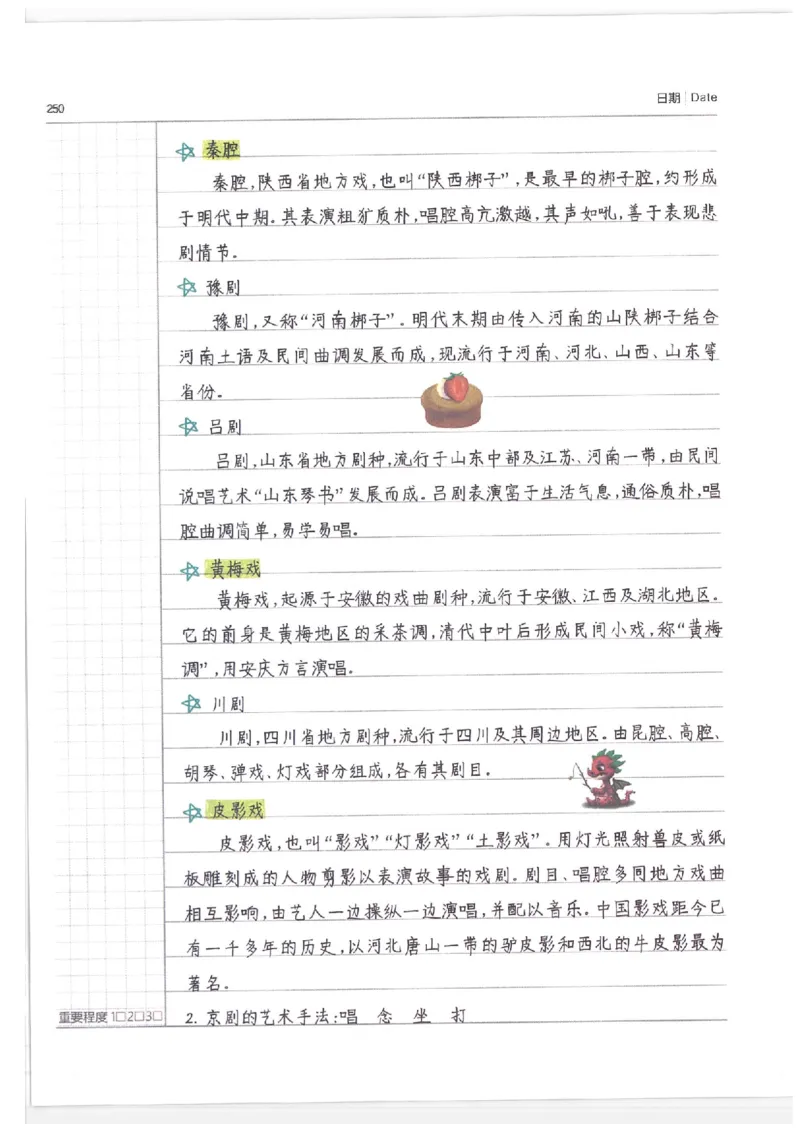 250
日期 Date
秦腔
秦腔,陕西省地方戏,也叫“陕西梆子”,是最早的梆子腔,约形成
于明代中期。其表演粗犷质朴,唱腔高亢激越,其声如吼,善于表现悲
剧情节。
豫剧
豫剧,又称“河南梆子”。明代末期由传入河南的山陕梆子结合
河南土语及民间曲调发展而成,现流行于河南、河北、山西、山东等
省份。
吕剧
吕剧,山东省地方剧种,流行于山东中部及江苏、河南一带,由民间
说唱艺术“山东琴书”发展而成。吕剧表演富于生活气息,通俗质朴,唱
腔曲调简单,易学易唱。
黄梅戏
黄梅戏,起源于安徽的戏曲剧种,流行于安徽、江西及湖北地区。
它的前身是黄梅地区的采茶调,清代中叶后形成民间小戏,称“黄梅
调”,用安庆方言演唱。
川剧
川剧,四川省地方剧种,流行于四川及其周边地区。由昆腔、高腔、
胡琴、弹戏、灯戏部分组成,各有其剧目。
皮影戏
皮影戏,也叫“影戏”“灯影戏”“土影戏”。用灯光照射兽皮或纸
板雕刻成的人物剪影以表演故事的戏剧。剧目、唱腔多同地方戏曲
相互影响,由艺人一边操纵一边演唱,并配以音乐。中国影戏距今已
有一千多年的历史,以河北唐山一带的驴皮影和西北的牛皮影最为
著名。
重要程度 1□2□3□
2. 京剧的艺术手法:唱 念 坐 打